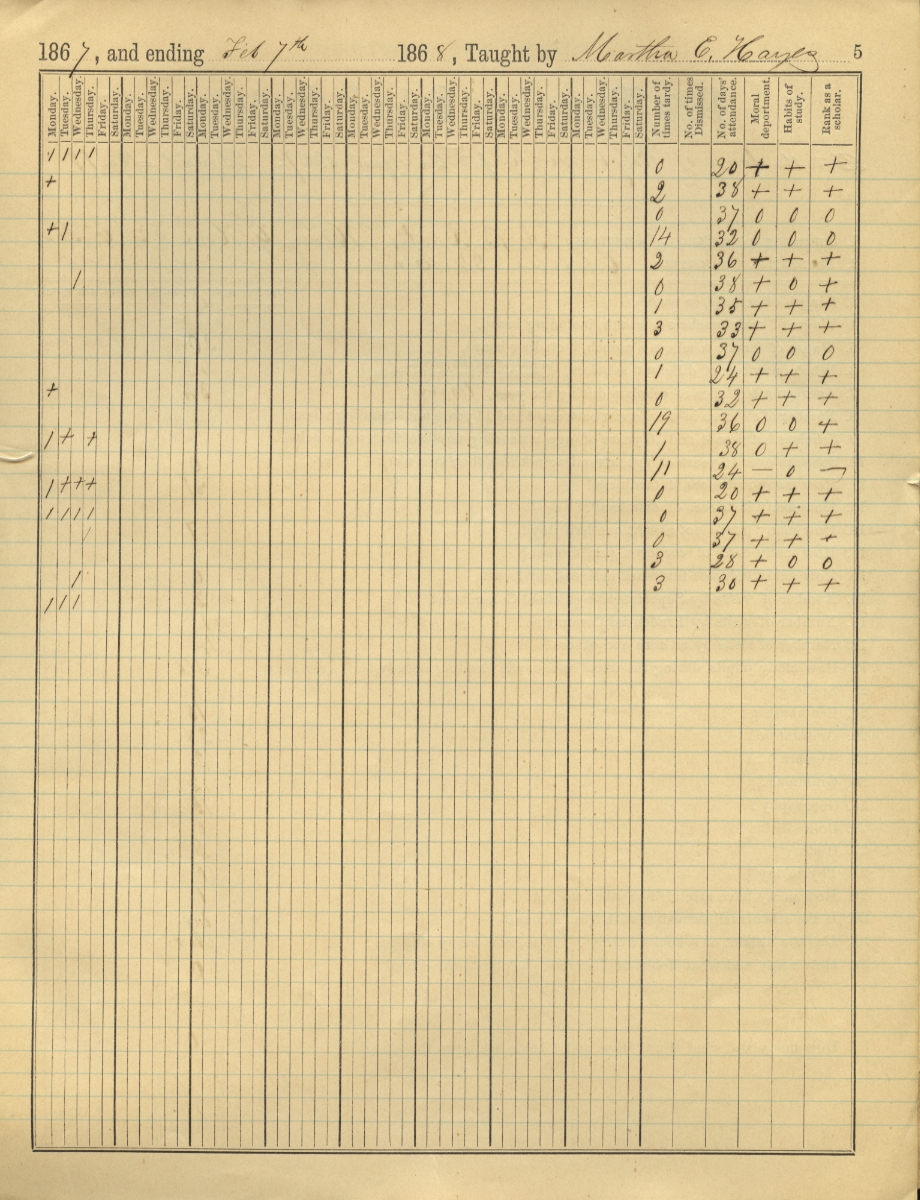 1867, and ending Feb 7th 1868, Taught by Martha E. Hayes 5
Monday. Tuesday. Wednesday. Thursday. Friday. Saturday. Monday. Tuesday. Wednesday. Thursday. Friday. Saturday. Monday. Tuesday. Wednesday. Thursday. Friday. Saturday. Monday. Tuesday. Wednesday. Thursday. Friday. Saturday. Monday. Tuesday. Wednesday. Thursday. Friday. Saturday. Monday. Tuesday. Wednesday. Thursday. Friday. Saturday. Monday. Tuesday. Wednesday. Thursday. Friday. Saturday. Monday. Tuesday. Wednesday. Thursday. Friday. Saturday. Number of times tardy. No. of times Dismissed. No. of days' attendance. Moral deportment. Habits of study. Rank as a scholar.
/ / / /
0 20 + + +
+
2 38 + + +
0 37 0 0 0
+ /
14 32 0 0 0
2 36 + + +
/
0 38 + 0 +
1 35 + + +
3 33 + + +
0 37 0 0 0
1 24 + + +
+
0 32 + + +
19 36 0 0 +
/ + +
1 38 0 + +
11 24 — 0 —
/ + + +
0 20 + + +
/ / / /
0 37 + + +
/
0 37 + + +
3 28 + 0 0
/
3 30 + + +
/ / /